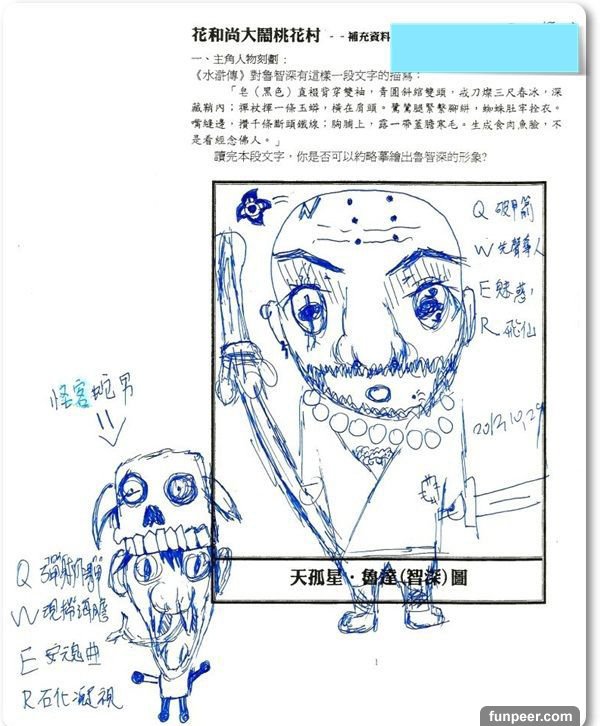 花和尚大鬧桃花村 - - 補充資料
一、主角人物刻劃：
《水滸傳》對魯智深有這樣一段文字的描寫：
「皂（黑色）直裰背穿雙袖，青圓斜綰雙頭，戒刀燦三尺春冰，深
藏鞘內；禪杖揮一條玉蟒，橫在肩頭。鷺鷥腿緊繫腳絣，蜘蛛肚牢拴衣。
嘴縫邊，攢千條斷頭鐵線；胸脯上，露一帶蓋膽寒毛。生成食肉魚臉，不
是看經念佛人。」
讀完本段文字，你是否可以約略摹繪出魯智深的形象?
Q 破甲箭
W 先聲奪人
E 魅惑
R 飛仙
2012,10,29
怪客蛇男
天孤星・魯達(智深)圖
Q
W 現撈海膽
E 安魂曲
R 石化凝視
1
funpeer.com